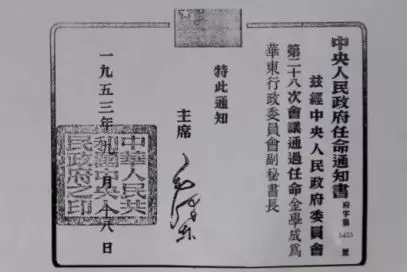 中央人民政府任命通知書
府字第5425號
茲經中央人民政府委員會
第二十八次會議通過任命金學成爲
華東行政委員會副秘書長
特此通知
主席
毛澤東
一九五三年九月十八日
中華人民共
和國中央人
民政府之印